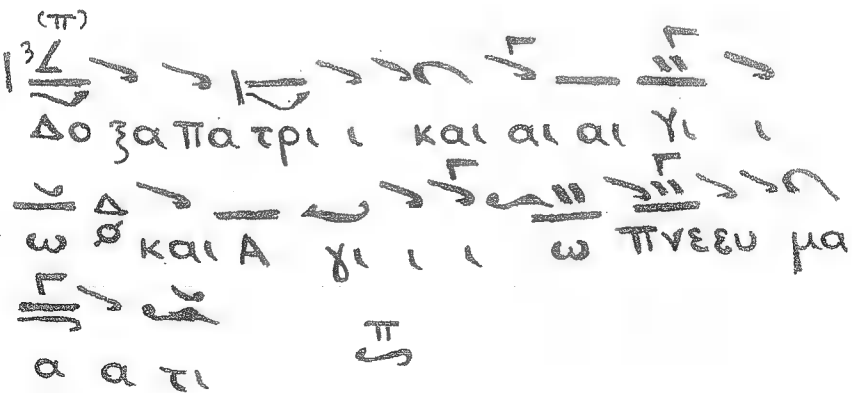 (π)
Δο ξα πα τρι ι και αι αι Υι ι
ω Δ και Α γι ι ι ω πνεευ μα
π
α α τι